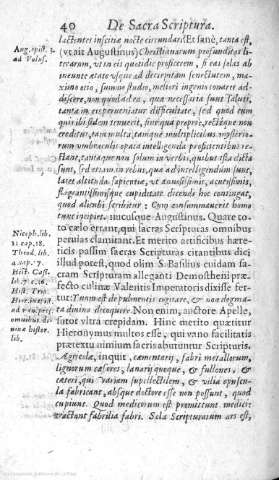 40 De Sacra Scriptura.
lactentes inscitiæ nocte circundari. Et sanè, tanta est,
Aug. epist. 3. ad Volus. (vt ait Augustinus) Christianarum profunditas lit-
terarum, vt in eis quotidie proficerem, si eas solas ab
ineunte ætate vsque ad decrepitam senectutem, ma-
ximo otio, summo studio, meliori ingenio conarer ad-
discere, non quod ad ea, quæ necessaria sunt saluti,
tanta in eis perueniatur difficultate, sed quòd cum
quis ibi fidem tenuerit, sine qua pie, recteque non vi-
uitur, tam multa, tamque multiplicibus mysterio-
rum vmbraculis opaca intelligenda proficientibus re-
stant, tantaque non solum in verbis, quibus ista dicta
sunt, sed etiam in rebus, quæ ad intelligendum sunt,
latet altitudo sapientiæ, vt annosissimis, acutissimis,
flagrantissimisque cupiditate discendi hoc contingat,
quod alicubi scribitur: Cum consummauerit homo
tunc incipiet. Hucusque Augustinus. Quare to-
to cælo errant, qui sacras Scripturas omnibus
peruias clamitant. Et meritò artificibus hære-
ticis passim sacras Scripturas citantibus dici
illud potest, quod olim S. Basilius cuidam sa-
cram Scripturam alleganti Demostheni præ-
fecto culinæ Valentis Imperatoris dixisse fer-
tur: Tuum est de pulmentis cogitare, & non dogma-
ta diuina decoquere. Non enim, auctore Apelle,
sutor vltra crepidam. Hinc meritò quæritur
Hieronymus multos esse, qui vano facilitatis
prætextu nimium sacris abutuntur Scripturis.
Agricolæ, inquit, cæmentarij, fabri metallorum,
lignorum cæsores, lanarij quoque, & fullones, &
cæteri, qui variam supellectilem, & vilia opuscu-
la fabricant, absque doctore esse non possunt, quod
cupiunt. Quod medicorum est promittunt medici:
tractant fabrilia fabri. Sola Scripturarum ars est,